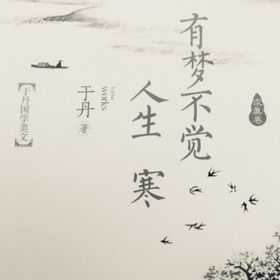 有梦不觉
人生 寒
works
于丹 著
于丹国学美文